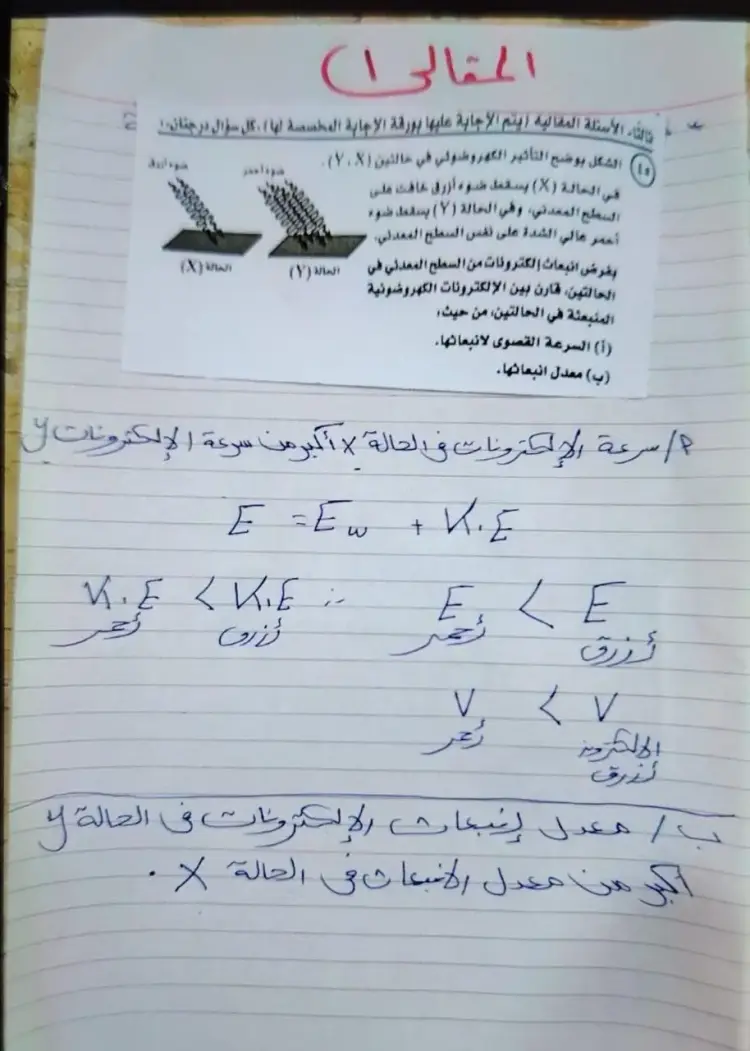 المقالى (1
ثالثًا، الأسئلة المقالية (يتم الإجابة عليها بورقة الإجابة المخصصة لها)، كل سؤال درجتان:
٤٥ الشكل يوضح التأثير الكهروضوئي في حالتين (Y، X).
في الحالة (X) يسقط ضوء أزرق خافت على
السطح المعدني، وفي الحالة (Y) يسقط ضوء
أحمر عالي الشدة على نفس السطح المعدني.
بفرض انبعاث إلكترونات من السطح المعدني في
الحالتين، قارن بين الإلكترونات الكهروضوئية
المنبعثة في الحالتين، من حيث:
(أ) السرعة القصوى لانبعاثها.
(ب) معدل انبعاثها.
ضوء أحمر
ضوء أزرق
الحالة (Y)
الحالة (X)
P/ سرعة الإلكترونات فى الحالة X أكبر من سرعة الإلكترونات y
E = Ew + K.E
E < E ∴ K.E < K.E
أزرق أحمر أزرق أحمر
V < V
الإلكترون أحمر
أزرق
ب / معدل إنبعاث الإلكترونات فى الحالة y
أكبر من معدل الانبعاث فى الحالة X .